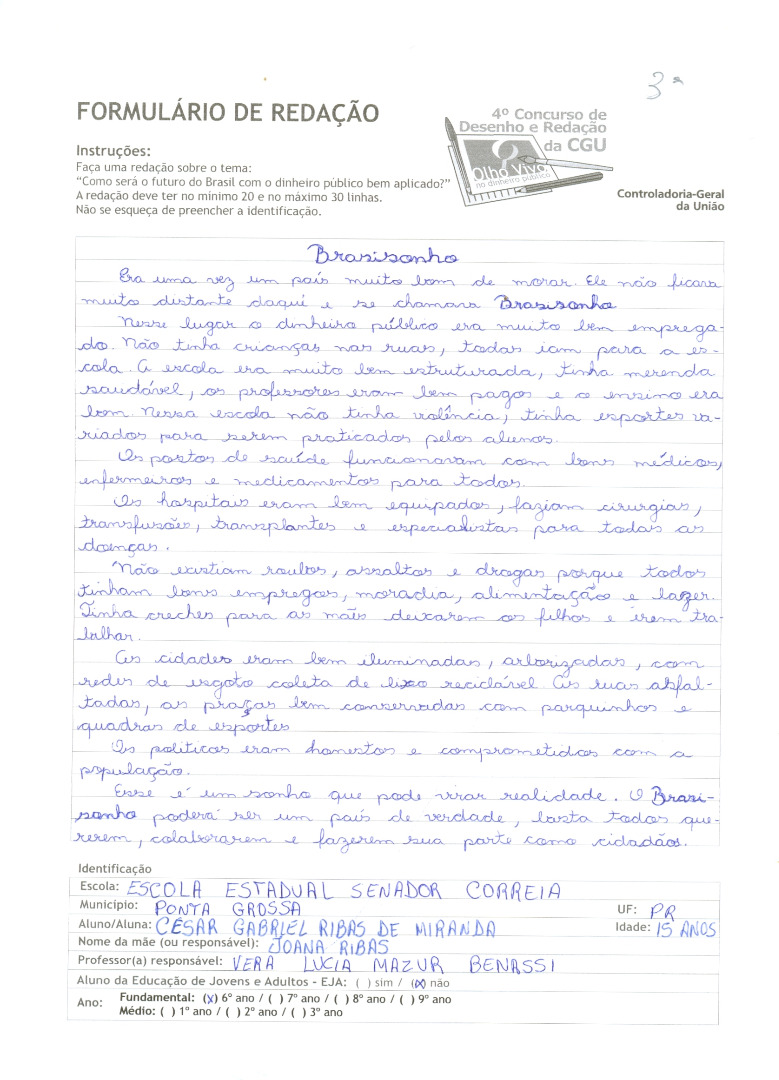 3ª
FORMULÁRIO DE REDAÇÃO
4º Concurso de
Desenho e Redação
da CGU
Olho Vivo
no dinheiro público
Controladoria-Geral
da União
Instruções:
Faça uma redação sobre o tema:
“Como será o futuro do Brasil com o dinheiro público bem aplicado?”
A redação deve ter no mínimo 20 e no máximo 30 linhas.
Não se esqueça de preencher a identificação.
Brasisonho
Era uma vez um país muito bom de morar. Ele não ficava
muito distante daqui e se chamava Brasisonho
Nesse lugar o dinheiro público era muito bem emprega-
do. Não tinha crianças nas ruas, todas iam para a es-
cola. A escola era muito bem estruturada, tinha merenda
saudável, os professores eram bem pagos e o ensino era
bom. Nessa escola não tinha violência, tinha esportes va-
riados para serem praticados pelos alunos.
Os postos de saúde funcionavam com bons médicos,
enfermeiros e medicamentos para todos.
Os hospitais eram bem equipados, faziam cirurgias,
transfusões, transplantes e especialistas para todas as
doenças.
Não existiam roubos, assaltos e drogas porque todos
tinham bons empregos, moradia, alimentação e lazer.
Tinha creches para as mães deixarem os filhos e irem tra-
balhar.
As cidades eram bem iluminadas, arborizadas, com
redes de esgoto coleta de lixo reciclável. As ruas asfal-
tadas, as praças bem conservadas com parquinhos e
quadras de esportes
Os políticos eram honestos e comprometidos com a
população.
Esse é um sonho que pode virar realidade. O Brasi-
sonho poderá ser um país de verdade, basta todos que-
rerem, colaborarem e fazerem sua parte como cidadãos.
Identificação
Escola: ESCOLA ESTADUAL SENADOR CORREIA
Município: PONTA GROSSA UF: PR
Aluno/Aluna: CÉSAR GABRIEL RIBAS DE MIRANDA Idade: 15 ANOS
Nome da mãe (ou responsável): JOANA RIBAS
Professor(a) responsável: VERA LUCIA MAZUR BENASSI
Aluno da Educação de Jovens e Adultos - EJA: ( ) sim / (x) não
Ano: Fundamental: (x) 6º ano / ( ) 7º ano / ( ) 8º ano / ( ) 9º ano
Médio: ( ) 1º ano / ( ) 2º ano / ( ) 3º ano